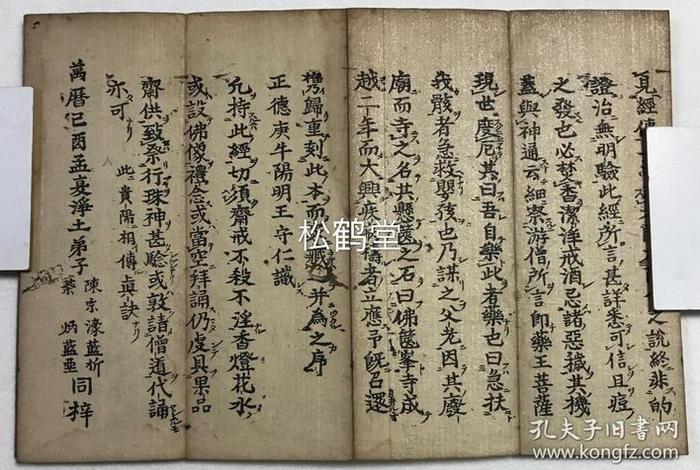 之說終非的
證治無明驗此經所言甚詳悉可信且痘
之發也必焚香潔淨戒酒忌諸惡穢其機
蓋與神通云細察游僧所言即藥王菩薩
現世度厄其曰吾自藥此者藥也曰急扶
我骸者急救嬰孩也乃謀之父老因其廢
廟而寺之名其懸篋之石曰佛篋峯寺成
越二年而大興疾禱者立應予既召還
携乃歸重刻此本而藏并為之序
正德庚午陽明王守仁識
允持此經切須齋戒不殺不淫香燈花水
或設佛像禮念或當空拜誦仍虔具果品
齋供致祭行珠神甚驗或敦請僧道代誦
亦可 此貴陽相傳真訣
萬曆己酉孟夏淨土弟子 陳宗濠藍析 葉炳藍亜 同梓
松鹤堂
孔夫子旧书网
www.kongfz.com